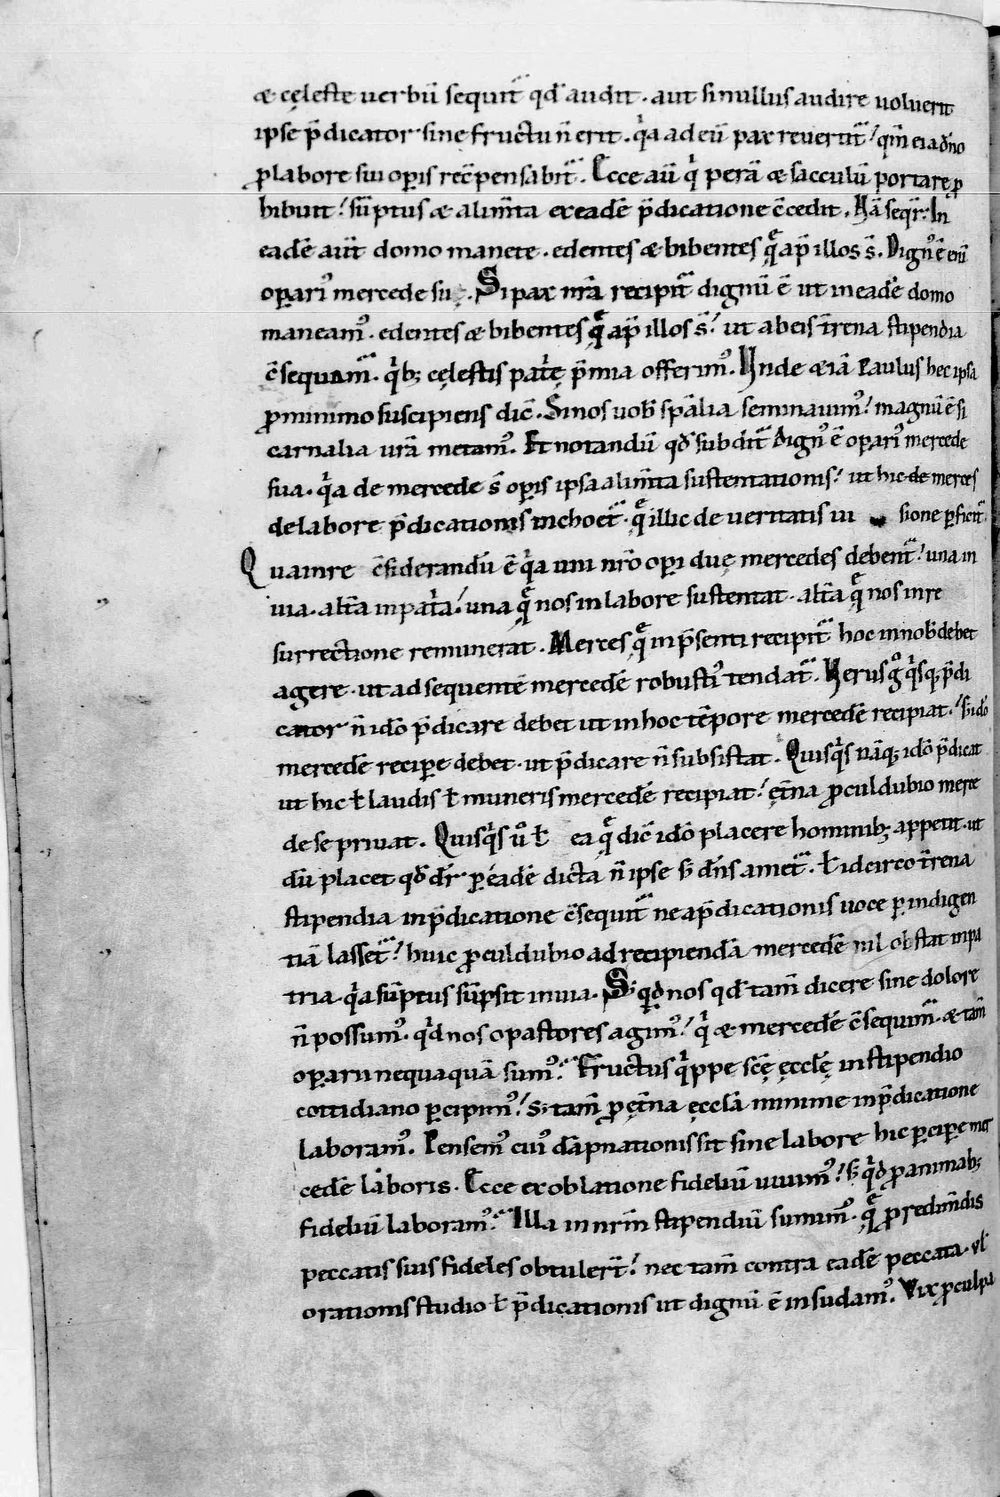 & cęleste uerbū sequit᷑ qd̄ audit. aut si nullus audire uoluerit
ipse p̄dicator sine fructu ñ erit. qͥa ad eū pax reuertit᷑. qm̄ ei a dn̄o
ꝓ labore sui oꝑis rec̄pensabit᷑. Ecce aūt qͥ perā & sacculū portare ꝓ
hibuit. sūptus & alim̄ta ex eadē p̄dicatione c̄cedit. Nā seqͥr. In
eadē aūt domo manete. edentes & bibentes q̄ apđ illos s̄. Dign᷒ ē enī
oꝑari᷒ mercede su . Si pax nr̄a recipit᷑ dignū ē ut in eadē domo
maneam᷒. edentes & bibentes q̄ apđ illos s̄. ut ab eis t̄rena stipendia
c̄sequam᷑. qͥb; cęlestis patͥę p̄mia offerim᷒. Unde & iā Paulus hec ipsa
ꝓ minimo suscipiens dic̄. Si nos uob̄ sp̄alia seminauim᷒. magnū ē si
carnalia urā metam᷒. Et notandū qd̄ subdit᷑ Dign᷒ ē oꝑari᷒ mercede
sua. qͥa de mercede s̄ oꝑis ipsa alim̄ta sustentationis. ut hic de merces
de labore p̄dicationis inchoet᷑. q̄ illic de ueritatis ui sione ꝑficit᷑.
Qua in re c̄siderandū ē qͥa uni nr̄o oꝑi duę mercedes debent᷑. una in
uia. alt̄a in patͥa. una q̄ nos in labore sustentat. alt̄a q̄ nos in re
surrectione remunerat. Merces q̄ in p̄senti recipit᷑ hoc in nob̄ debet
agere. ut ad sequentē mercedē robusti᷒ tendat᷑. Uerus gͦ qͥsq; p̄di
cator ñ idō p̄dicare debet ut in hoc tēpore mercedē recipiat. s̄ idō
mercedē recipe debet. ut p̄dicare ñ subsistat. Quisqͥs nāq; idō p̄dicat
ut hic ł laudis ł muneris mercedē recipiat. et̄na ꝓculdubio merce
de se priuat. Quisqͥs ūo ł ea q̄ dic̄ idō placere hominib; appetit. ut
dū placet qd̄ dr̄ ꝑ eadē dicta ñ ipse s̄ dn̄s amet᷑. ł idcirco t̄rena
stipendia in p̄dicatione c̄sequit᷑ ne a p̄dicationis uoce ꝑ indigen
tiā lasset᷑. huic ꝓculdubio ad recipiendā mercedē nil obstat in pa
tria. qͥa sūptus sūpsit in uia. S; qͥd nos qd̄ tam̄ dicere sine dolore
ñ possum᷒. qͥd nos o pastores agim᷒. qͥ & mercedē c̄sequim᷑. & tam̄
oꝑarii nequaquā sum᷒. Fructus qͥppe scę̄ ęccłę in stipendio
cottidiano ꝑcipim᷒. s; tam̄ ꝓ ęt̄na ęccłā minime in p̄dicatione
laboram᷒. Pensem᷒ cui᷒ dāpnationis sit sine labore hic ꝑcipere mer
cedē laboris. Ecce ex oblatione fideliū uiuim᷒. s̄ qͥd ꝓ animab;
fideliū laboram᷒. Illa in nrm̄ stipendiū sumim᷒. q̄ ꝓ redim̄dis
peccatis suis fideles obtuler̄t. nec tam̄ contra eadē peccata. ul̄
orationis studio ł p̄dicationis ut dignū ē insudam᷒. Vix ꝓ culpa